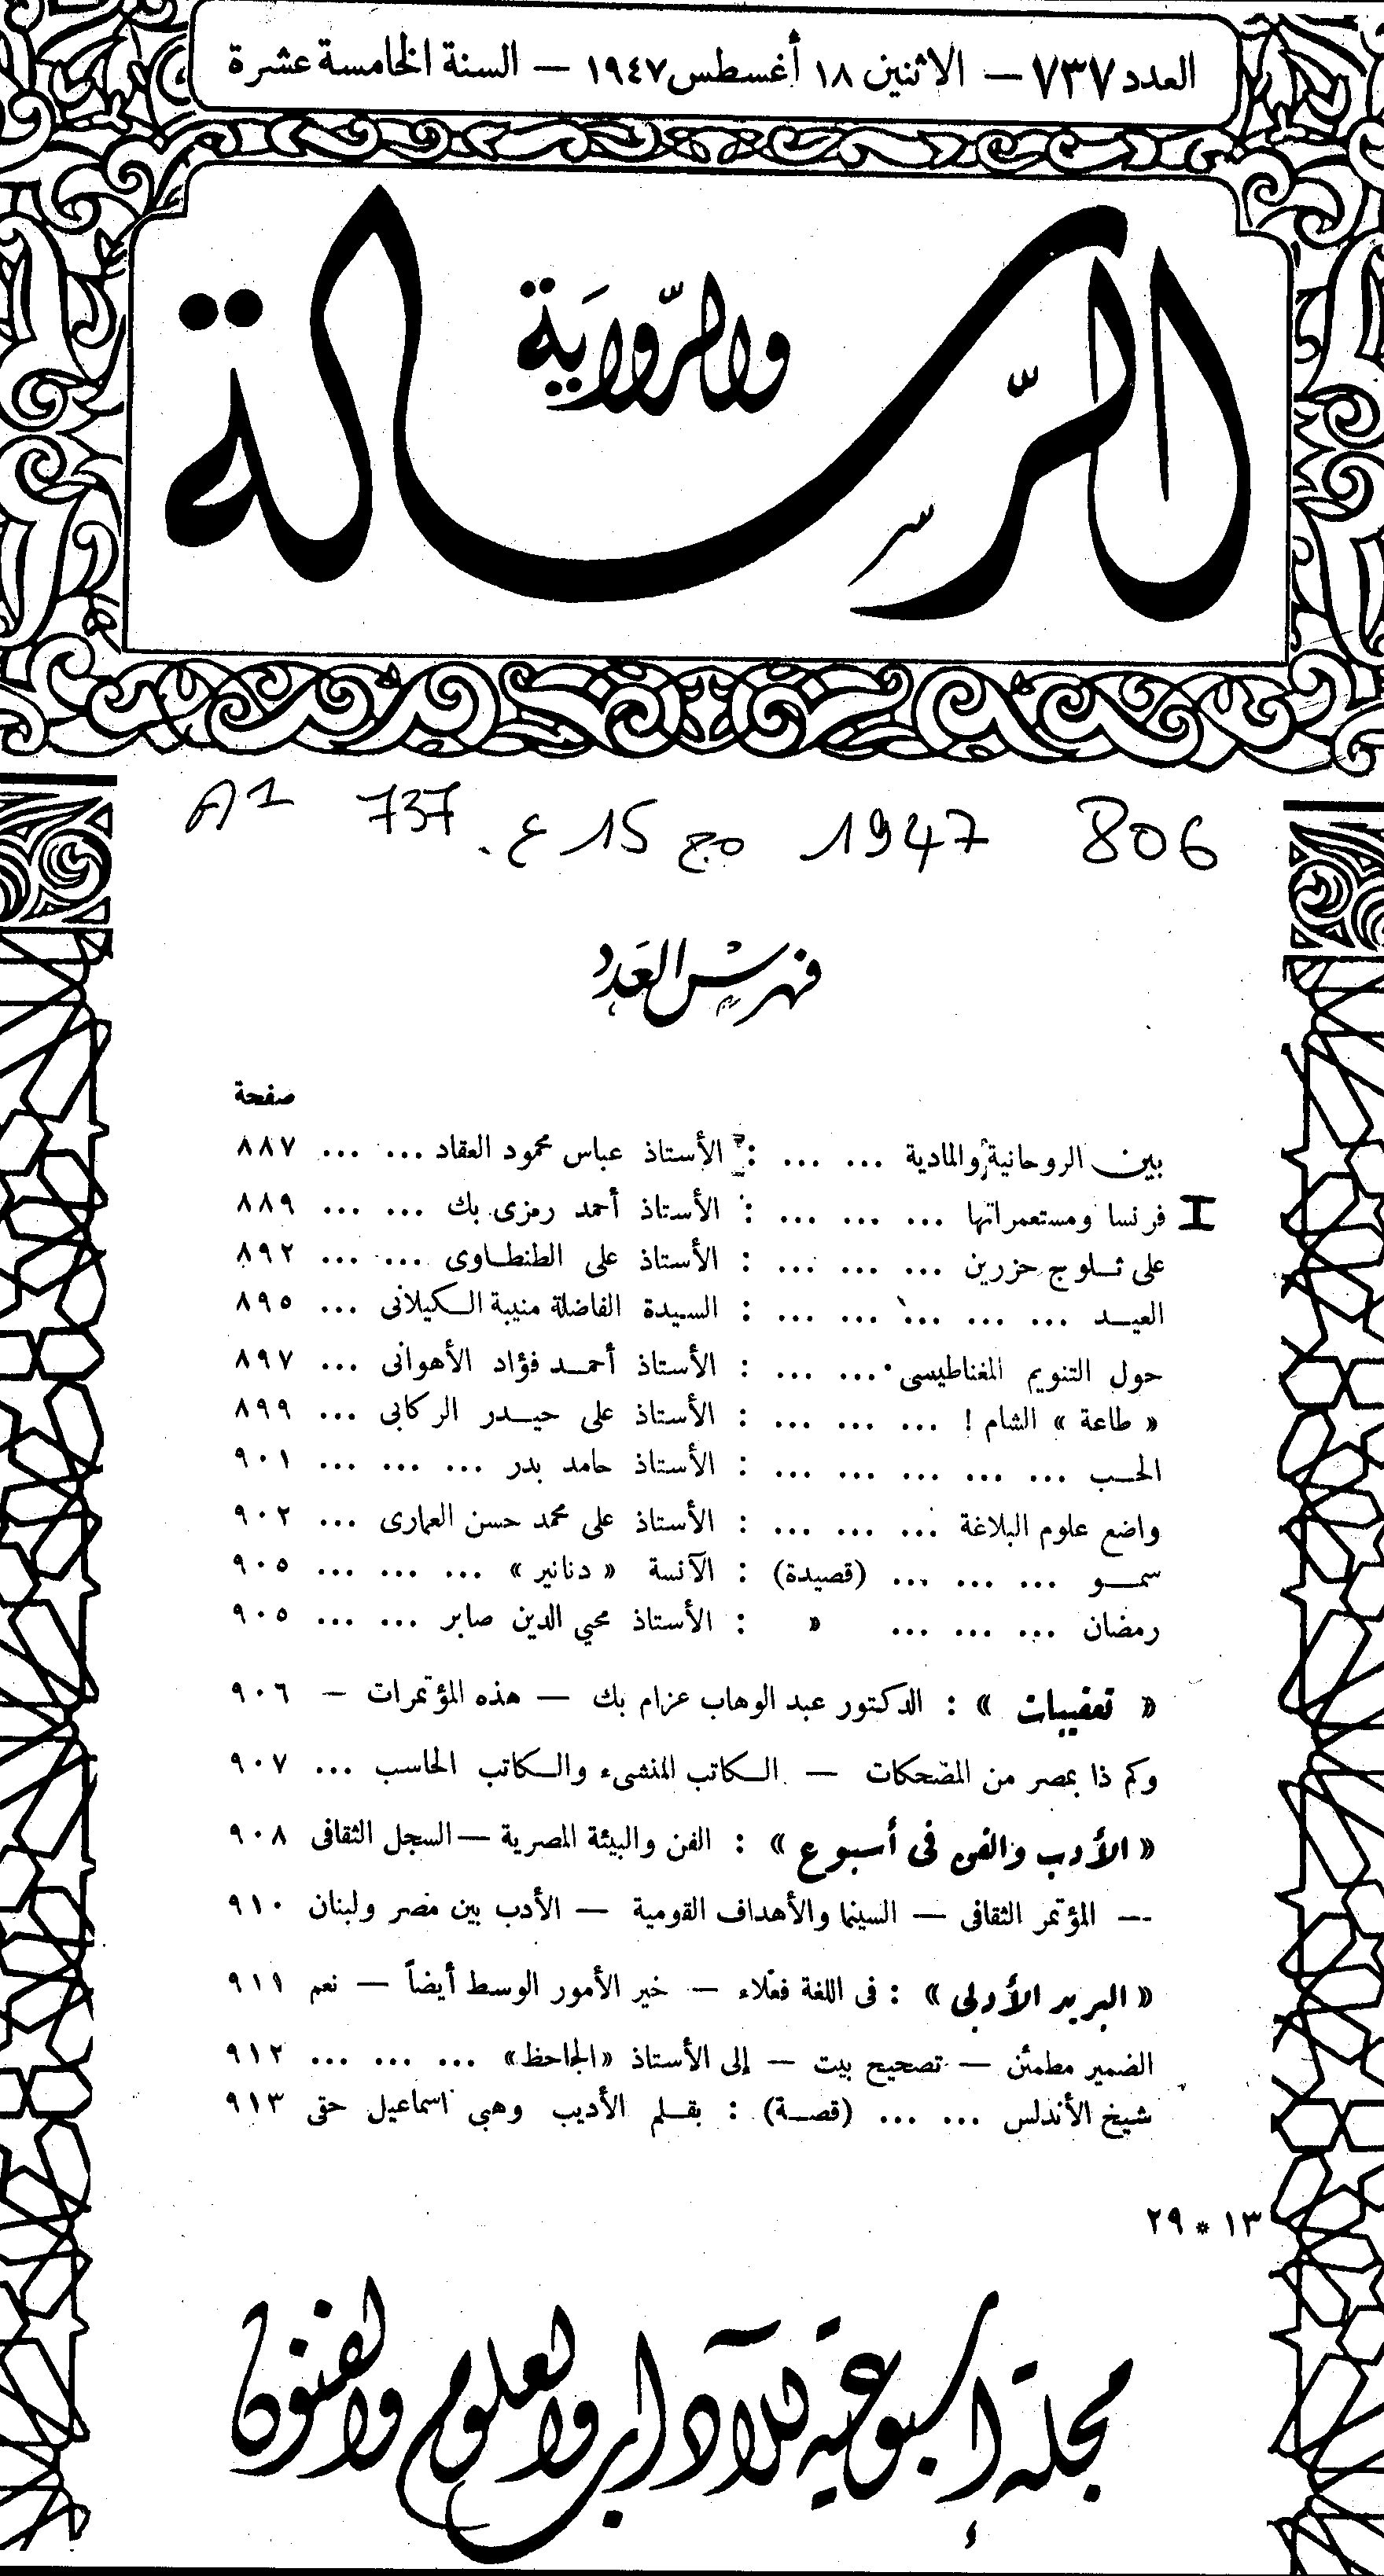 العدد ٧٣٧ — الاثنين ١٨ أغسطس ١٩٤٧ — السنة الخامسة عشرة
الرسالة
والرواية
A1 737 ع. 15 مج 1947 806
فهرس العدد
صفحة
بين الروحانية والمادية ... ... : الأستاذ عباس محمود العقاد ... ... ٨٨٧
I فرنسا ومستعمراتها ... ... ... : الأستاذ أحمد رمزى بك ... ... ٨٨٩
على ثلوج حزرين ... ... ... : الأستاذ على الطنطاوى ... ... ٨٩٢
العيد ... ... ... ... ... : السيدة الفاضلة منيبة الكيلانى ... ٨٩٥
حول التنويم المغناطيسى ... ... : الأستاذ أحمد فؤاد الأهوانى ... ٨٩٧
« طاعة » الشام ! ... ... ... : الأستاذ على حيدر الركابى ... ٨٩٩
الحب ... ... ... ... ... : الأستاذ حامد بدر ... ... ... ٩٠١
واضع علوم البلاغة ... ... ... : الأستاذ على محمد حسن العمارى ... ٩٠٢
سمو ... ... ... (قصيدة) : الآنسة « دنانير » ... ... ... ٩٠٥
رمضان ... ... ... » : الأستاذ محيي الدين صابر ... ... ٩٠٥
« تعقيبات » : الدكتور عبد الوهاب عزام بك — هذه المؤتمرات — ٩٠٦
وكم ذا بمصر من المضحكات — الكاتب المنشىء والكاتب الحاسب ... ٩٠٧
« الأدب والفن فى أسبوع » : الفن والبيئة المصرية — السجل الثقافى ٩٠٨
— المؤتمر الثقافى — السينما والأهداف القومية — الأدب بين مصر ولبنان ٩١٠
« البريد الأدبى » : فى اللغة فعلاء — خير الأمور الوسط أيضاً — نعم ٩١١
الضمير مطمئن — تصحيح بيت — إلى الأستاذ «الجاحظ» ... ... ... ٩١٢
شيخ الأندلس ... ... (قصة) : بقلم الأديب وهبي اسماعيل حقى ٩١٣
١٣ * ٢٩
مجلة إسبوعية للآداب والعلوم والفنون